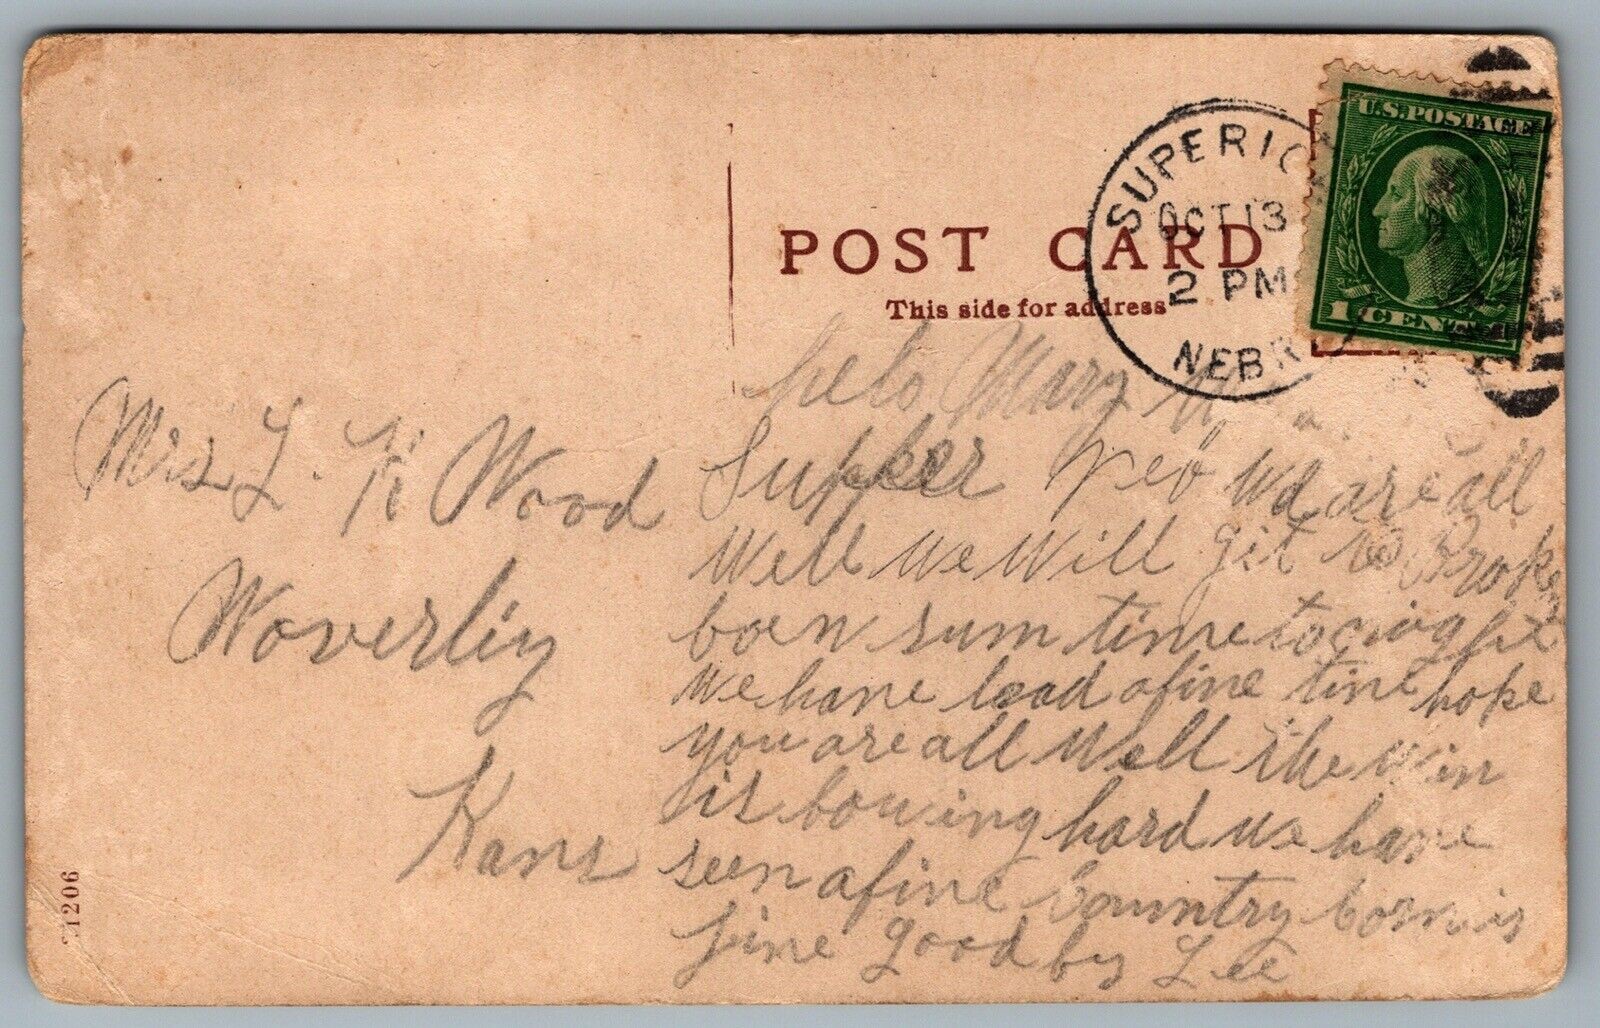 POST CARD
This side for address
SUPERIO
OCT 13
2 PM
NEBR
U.S. POSTAGE
1 CENT
Mrs L. K Wood
Woverliy
Kans
helo Mary
Supper we are all
well we will git to Broke
boen sum time to nioght
we have head a fine time hope
you are all well the win
is bowing hard we have
seen a fine Country Corn is
fine good by Lee
1206